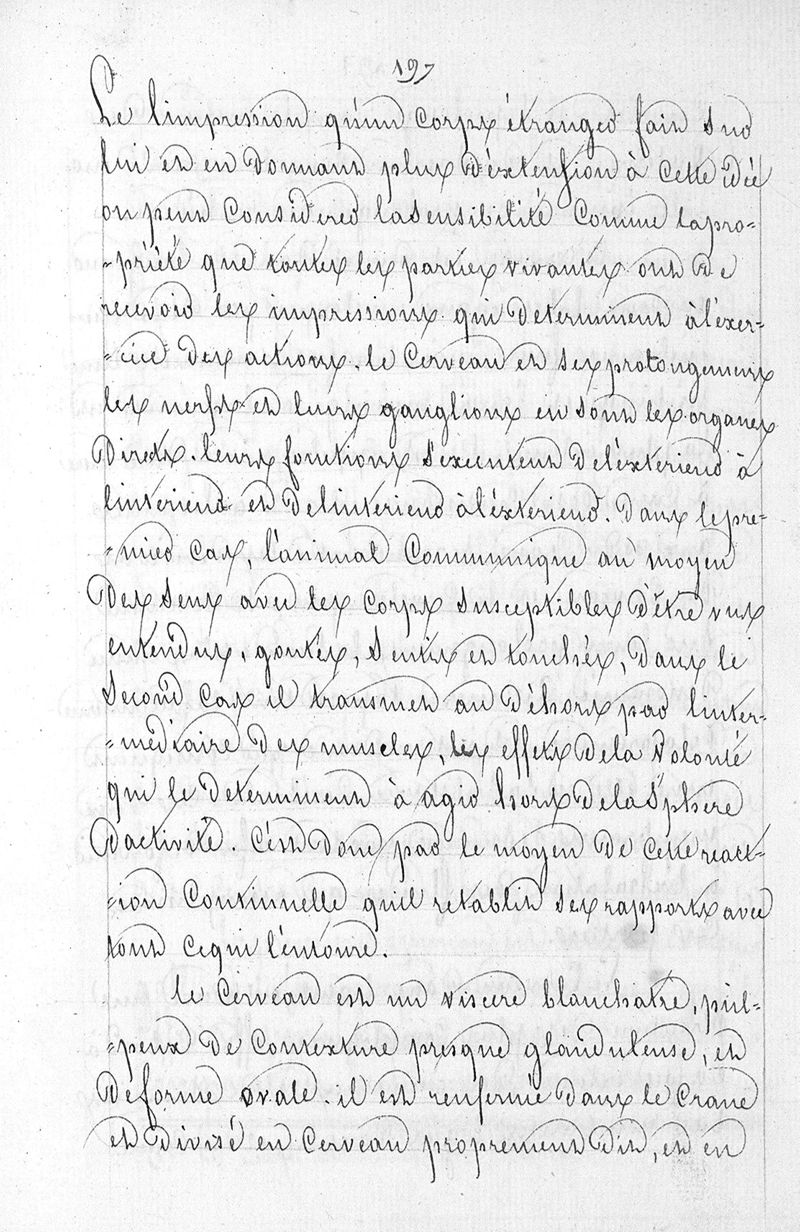 197
de l'impression qu'un corps étranger fait sur
lui et en donnant plus d'extension à cette idée
on peut considerer la sensibilité comme la pro-
-priété que toutes les parties vivantes ont de
recevoir les impressions qui determinent à l'éxer-
-cice des actions. le cerveau et ses prolongemens
les nerfs et leurs ganglions en sont les organes
directs. leurs fonctions s'executent de l'éxterieur à
l'interieur et de l'interieur à l'éxterieur. dans le pre-
-mier cas, l'animal communique au moyen
des sens avec les corps susceptibles d'être vus
entendus, goutés, sentis et touchés, dans le
second cas il transmet au déhors par l'inter-
-médiaire des muscles, les effets de la volonté
qui le determinent à agir hors de la sphere
d'activité. C'est donc par le moyen de cette reáct-
-ion continuelle qu'il retablit ses rapports avec
tout ce qui l'entoure.
le cerveau est un viscere blanchatre, pul-
-peux de contexture presque glanduleuse, et
de forme ovale. il est renfermé dans le crane
et divisé en cerveau proprement dit, et en